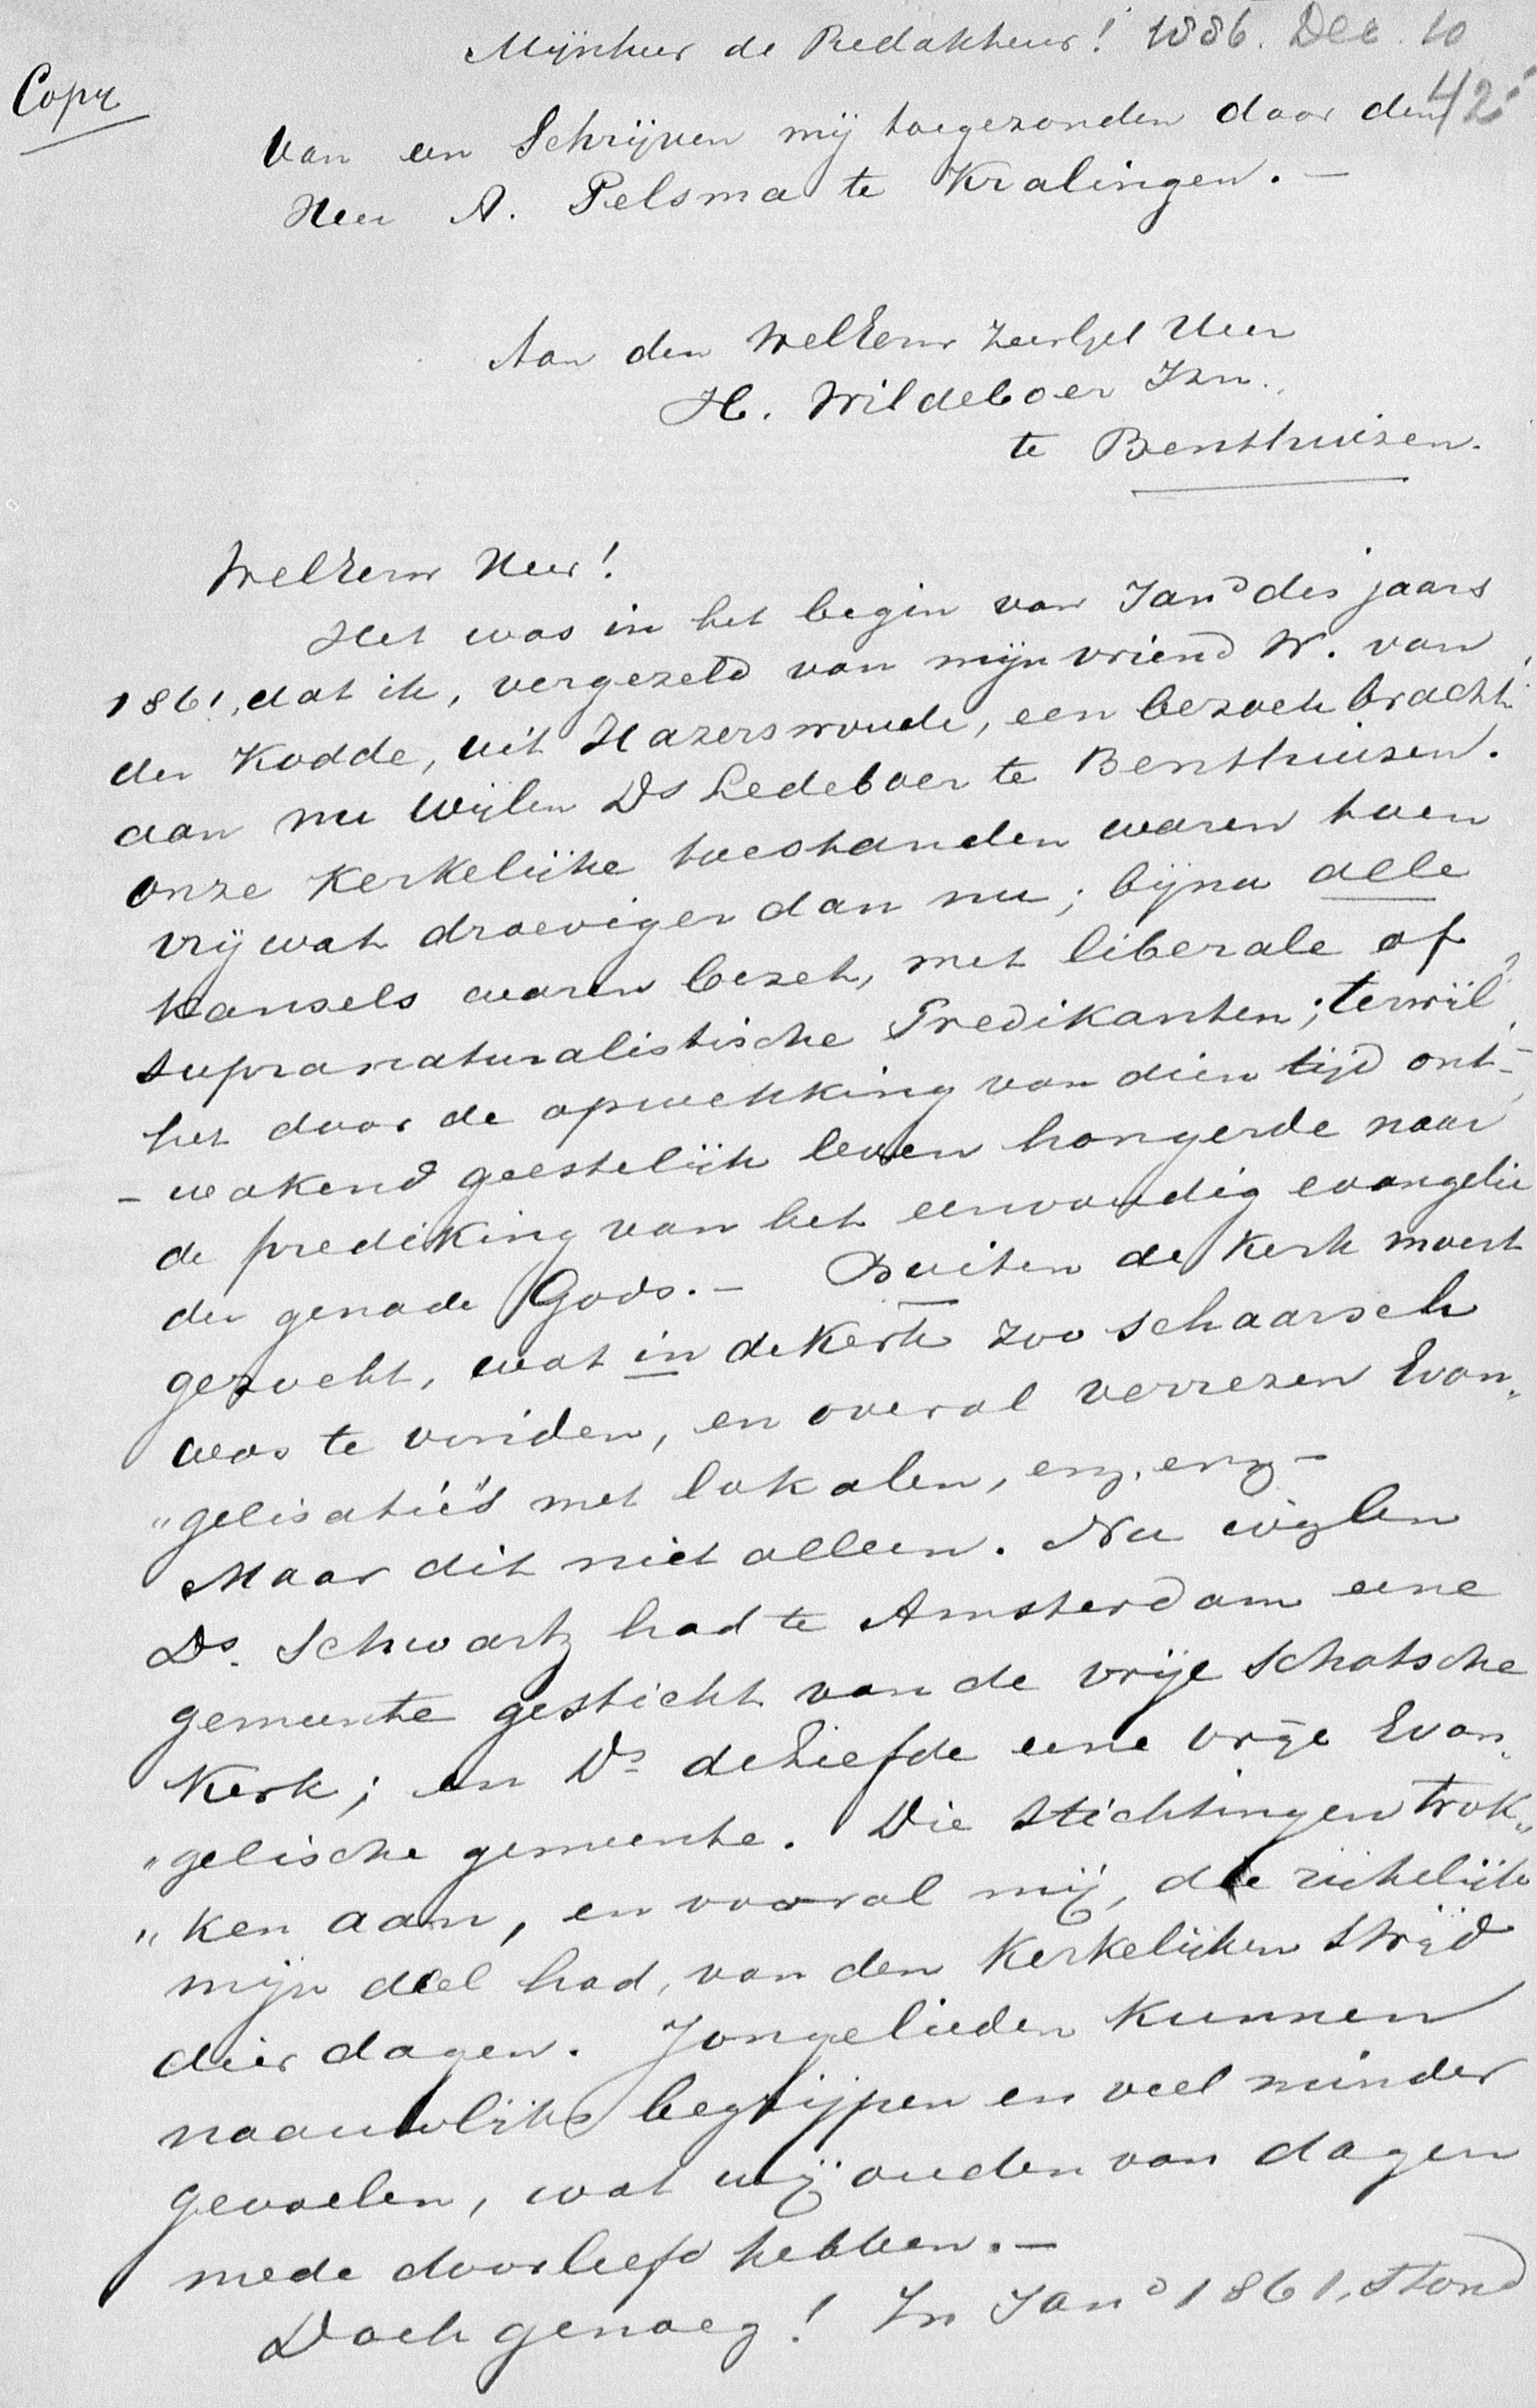 Mijnheer de Redakteur! 1886. Dec. 10
Copy
42.
Van een Schrijven mij toegezonden door den
Heer A. Pelsma te Kralingen. —
Aan den WelEerw ZeerGel Heer
H. Wildeboer Jzn.
te Benthuizen.
WelEerw Heer!
Het was in het begin van Jan des jaars
1861, dat ik, vergezeld van mijn vriend W. van
der Kodde, uit Hazerswoude, een bezoek bracht
aan nu wijlen Ds Ledeboer te Benthuizen.
Onze Kerkelijke toestanden waren toen
vrij wat droeviger dan nu; bijna alle
kansels waren bezet, met liberale of
supranaturalistische Predikanten; terwijl
het door de opwekking van dien tijd ont-
- wakend geestelijk leven hongerde naar
de prediking van het eenvoudig evangelie
der genade Gods. — Buiten de Kerk moest
gezocht, wat in de Kerk zoo schaarsch
was te vinden, en overal verrezen Evan„
„gelisatie's met lokalen, enz. enz —
Maar dit niet alleen. Nu wijlen
Ds. Schwartz had te Amsterdam eene
gemeente gesticht van de vrije Schotsche
Kerk; en Ds de Liefde eene vrije Evan„
„gelische gemeente. Die stichtingen trok„
„ken aan, en vooral mij, die rijkelijk
mijn deel had, van den Kerkelijken strijd
dier dagen. Jongelieden kunnen
naauwlijks begrijpen en veel minder
gevoelen, wat wij ouden van dagen
mede doorleefd hebben. —
Doch genoeg! In Jan 1861, stond